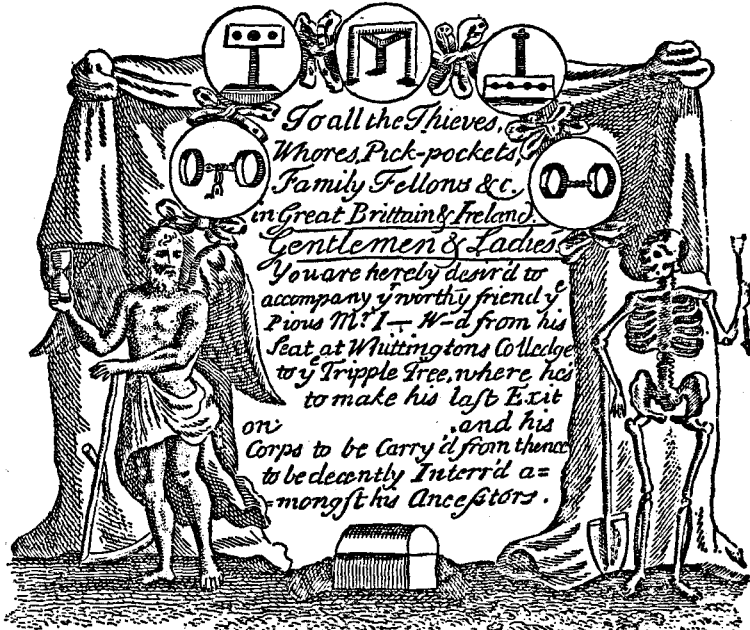 To all the Thieves,
Whores, Pick-pockets,
Family Fellons &c.
in Great Brittain & Ireland.
Gentlemen & Ladies
You are hereby desir'd to
accompany yʳ worthy friend yᵉ
Pious Mʳ. I— W-d from his
Seat at Whittingtons Colledge
to yᵉ Tripple Tree, where he's
to make his last Exit
on , and his
Corps to be Carry'd from thence
to be decently Interr'd a=
=mongst his Ancestors.